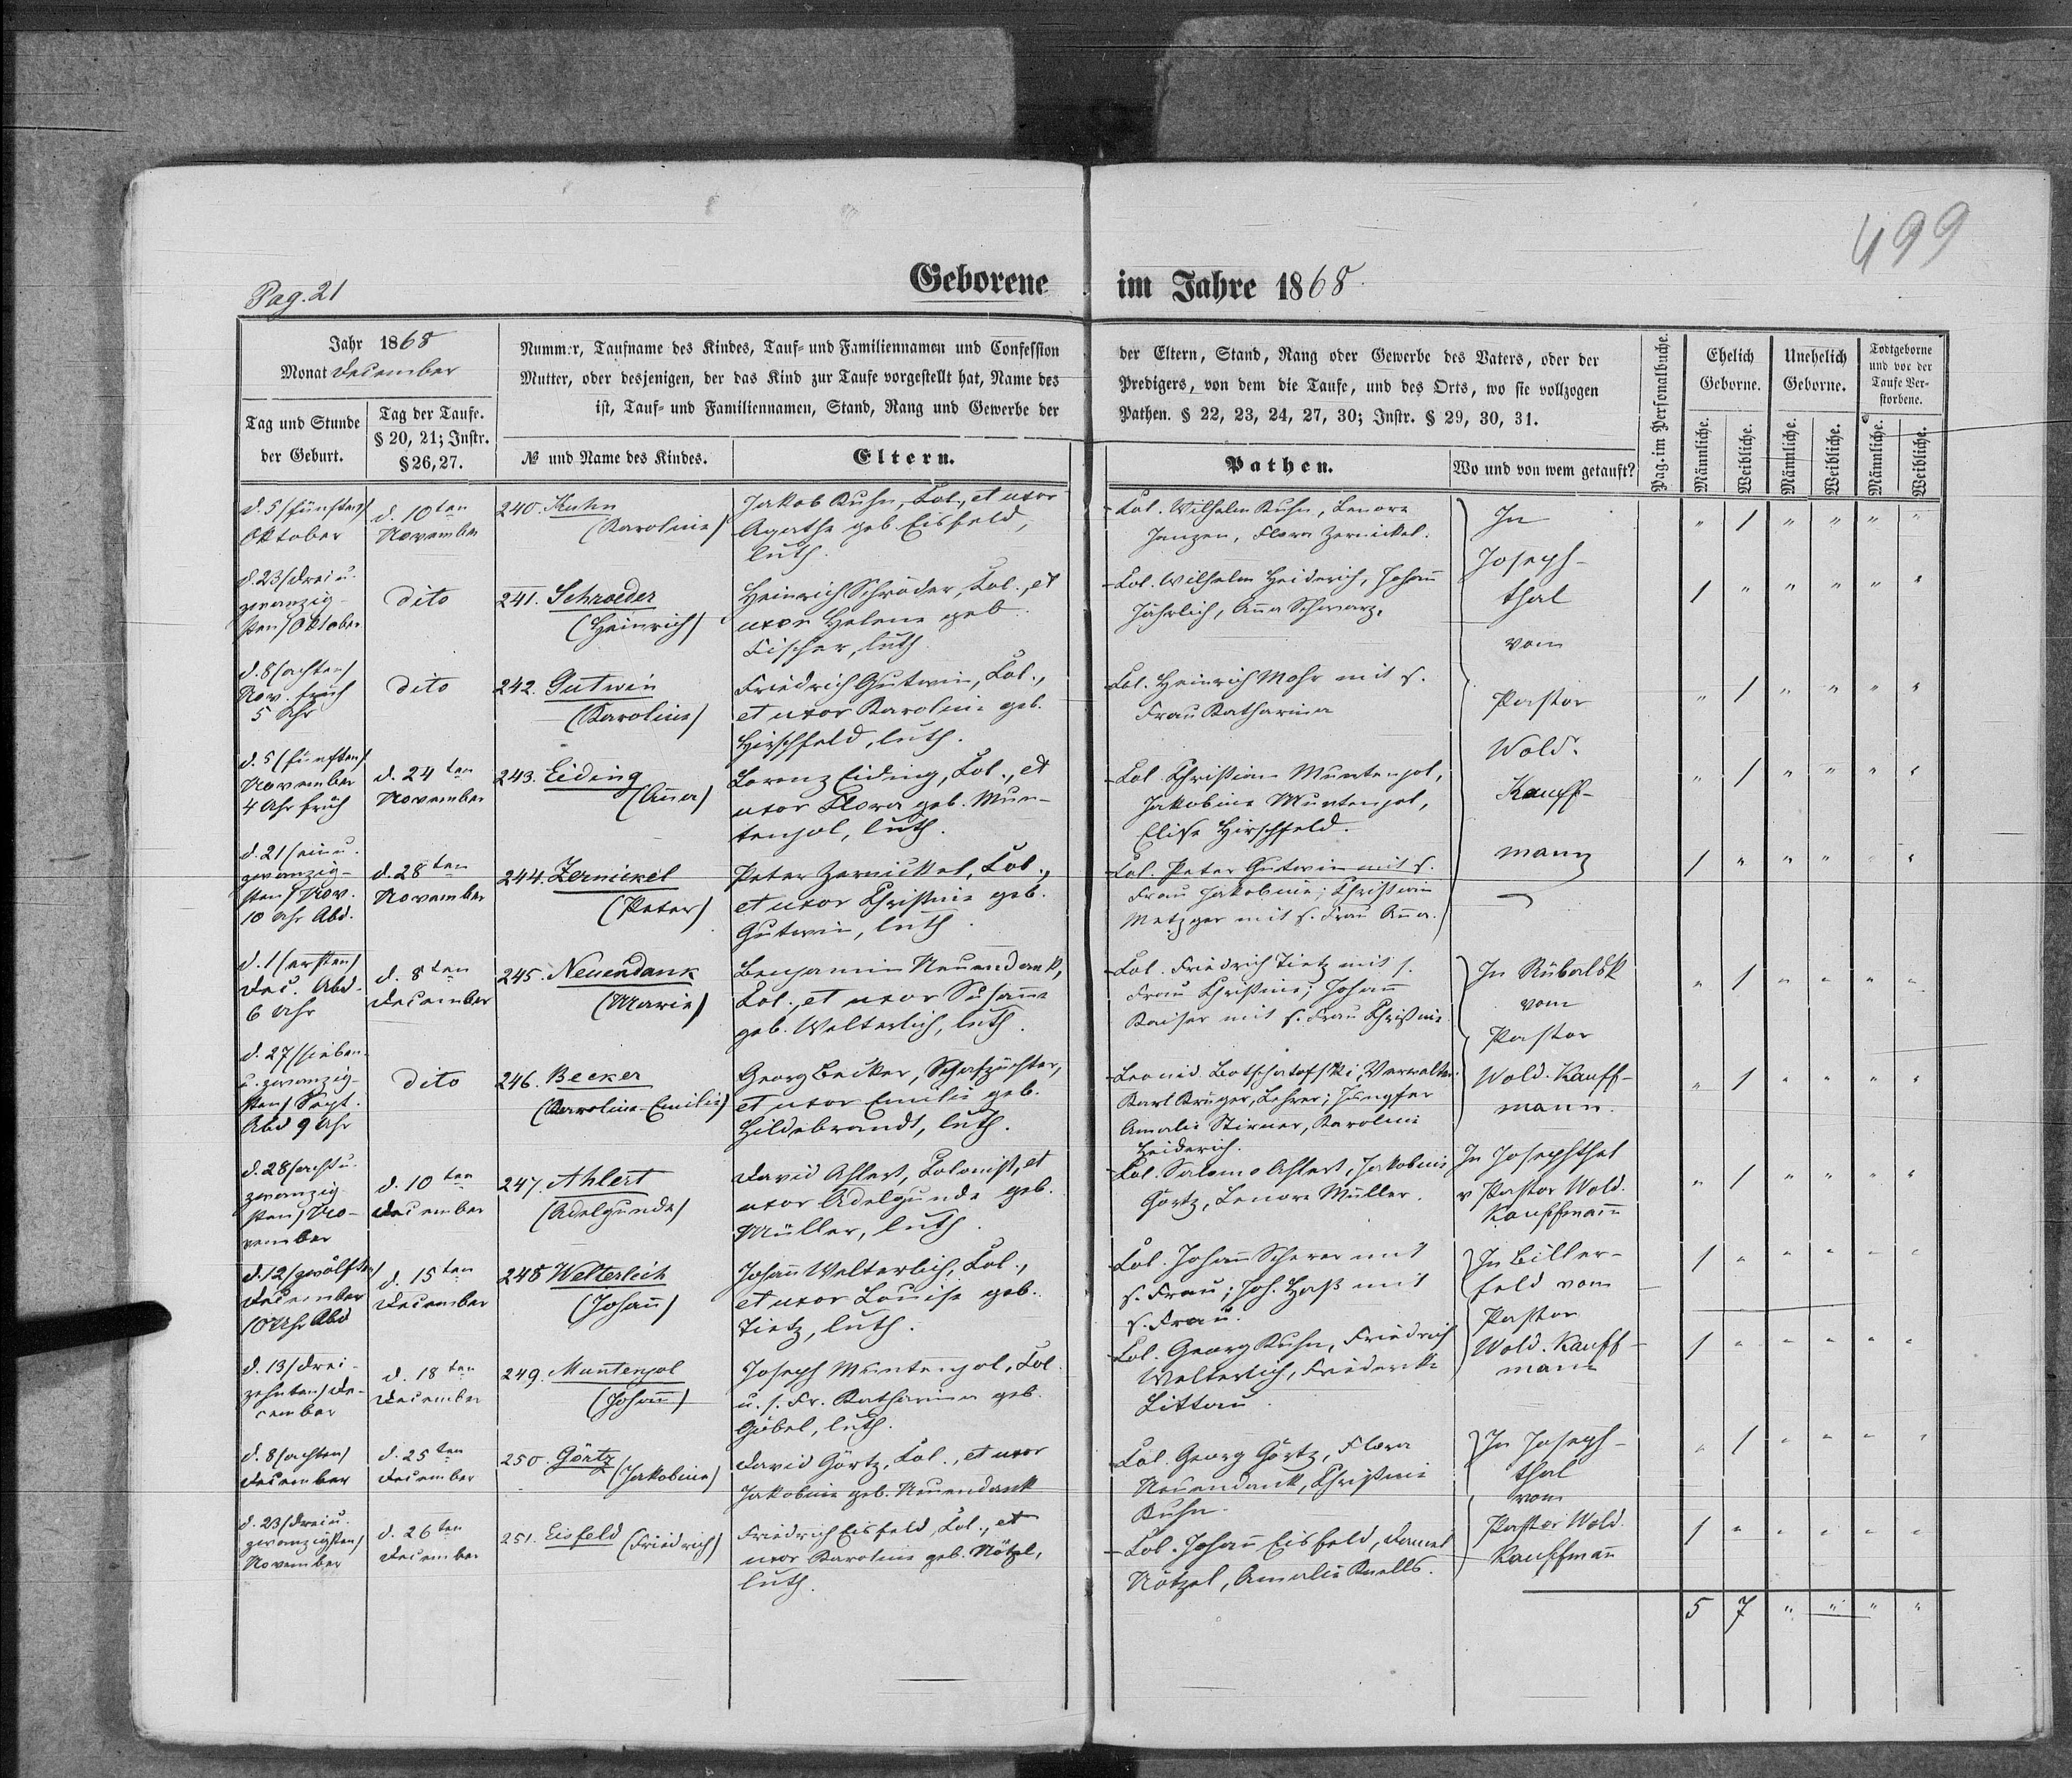 499
Pag. 21
Geborene im Jahre 1868.
Jahr 1868
Monat December
Tag und Stunde
der Geburt.
Tag der Taufe.
§ 20, 21; Instr.
§ 26, 27.
Nummer, Taufname des Kindes, Tauf- und Familiennamen und Confession
Mutter, oder desjenigen, der das Kind zur Taufe vorgestellt hat, Name des
ist, Tauf- und Familiennamen, Stand, Rang und Gewerbe der
№ und Name des Kindes.
Eltern.
der Eltern, Stand, Rang oder Gewerbe des Vaters, oder der
Predigers, von dem die Taufe, und des Orts, wo sie vollzogen
Pathen. § 22, 23, 24, 27, 30; Instr. § 29, 30, 31.
Pathen.
Wo und von wem getauft?
Pag. im Personalbuche.
Ehelich
Geborne.
Unehelich
Geborne.
Todtgeborne
und vor der
Taufe Ver-
storbene.
Männliche.
Weibliche.
Männliche.
Weibliche.
Männliche.
Weibliche.
d. 5 (fünften)
Oktober
d. 10ten
November
240. Kuhn
(Karoline)
Jakob Kuhn, Col., et uxor
Agathe geb. Eisfeld,
luth.
Col. Wilhelm Kuhn, Lenore
Janzen, Flora Zernickel.
In
Joseph-
thal
vom
Pastor
Wold.
Kauff-
mann
" / " " " "
d. 23 (drei u.
zwanzig-
sten) Oktober
dito
241. Schroeder
(Heinrich)
Heinrich Schröder, Col., et
uxor Helene geb.
Fischer, luth.
Col. Wilhelm Heiderich, Johann
Jährlich, Anna Schwarz.
/ " " " " "
d. 8 (achten)
Nov. früh
5 Uhr
dito
242. Gutwin
(Karoline)
Friedrich Gutwin, Col.,
et uxor Karoline geb.
Hirschfeld, luth.
Col. Heinrich Mohr mit s.
Frau Katharina
" / " " " "
d. 5 (fünften)
November
4 Uhr früh
d. 24ten
November
243. Eiding
(Anna)
Lorenz Eiding, Col., et
uxor Flora geb. Mun-
tenjol, luth.
Col. Christian Muntenjol,
Jakobine Muntenjol,
Elise Hirschfeld.
" / " " " "
d. 21 (ein u.
zwanzig-
sten) Nov.
10 Uhr Abd.
d. 28ten
November
244. Zernickel
(Peter)
Peter Zernickel, Col.,
et uxor Christine geb.
Gutwin, luth.
Col. Peter Gutwin mit s.
Frau Jakobine; Christian
Metzger mit s. Frau Anna.
/ " " " " "
d. 1 (ersten)
Dec. Abd.
6 Uhr
d. 8ten
December
245. Neuendank
(Marie)
Benjamin Neuendank,
Col., et uxor Susanne
geb. Welterlich, luth.
Col. Friedrich Tietz mit s.
Frau Christine; Johann
Kaiser mit s. Frau Christine.
In Rübalsk
vom
Pastor
Wold. Kauff-
mann.
" / " " " "
d. 27 (sieben
u. zwanzig-
sten) Sept.
Abd 9 Uhr
dito
246. Becker
(Karoline-Emilie)
Georg Becker, Schafzüchter,
et uxor Emilie geb.
Hildebrandt, luth.
Leonid. Botschatofski, Verwalter.
Karl Krüger, Lehrer; Jungfer
Amalie Stirner, Karoline
Heiderich.
" / " " " "
d. 28 (acht u.
zwanzig
sten) No-
vember
d. 10ten
December
247. Ahlert
(Adelgunde)
David Ahlert, Colonist, et
uxor Adelgunde geb.
Müller, luth.
Col. Salomo Ahlert, Jakobine
Görtz, Lenore Müller.
In Josephthal
v Pastor Wold.
Kauffmann
" / " " " "
d. 12 (zwölften)
December
10 Uhr Abd
d. 15ten
December
248 Welterlich
(Johann)
Johann Welterlich, Col.,
et uxor Louise geb.
Tietz, luth.
Col. Johann Scherer mit
s. Frau; Joh. Haß mit
s. Frau.
In Biller-
feld vom
Pastor
Wold. Kauff-
mann
/ " " " " "
d. 13 (drei-
zehnten) De-
cember
d. 18ten
December
249. Muntenjol
(Johann)
Joseph Muntenjol, Col.
u. s. Fr. Katharina geb.
Göbel, luth.
Col. Georg Kuhn, Friedrich
Welterlich, Friederike
Littau.
/ " " " " "
d. 8 (achten)
December
d. 25ten
December
250. Görtz
(Jakobine)
David Görtz, Col., et uxor
Jakobine geb. Neuendank
Col. Georg Görtz, Flora
Neuendank, Christine
Kuhn.
In Joseph-
thal
vom
Pastor Wold.
Kauffmann
" / " " " "
d. 23 (drei u.
zwanzigsten)
November
d. 26ten
December
251. Eisfeld (Friedrich)
Friedrich Eisfeld, Col., et
uxor Karoline geb. Nötzel,
luth.
Col. Johann Eisfeld, Daniel
Nötzel, Amalie Knells.
/ " " " " "
5 7 " " " "